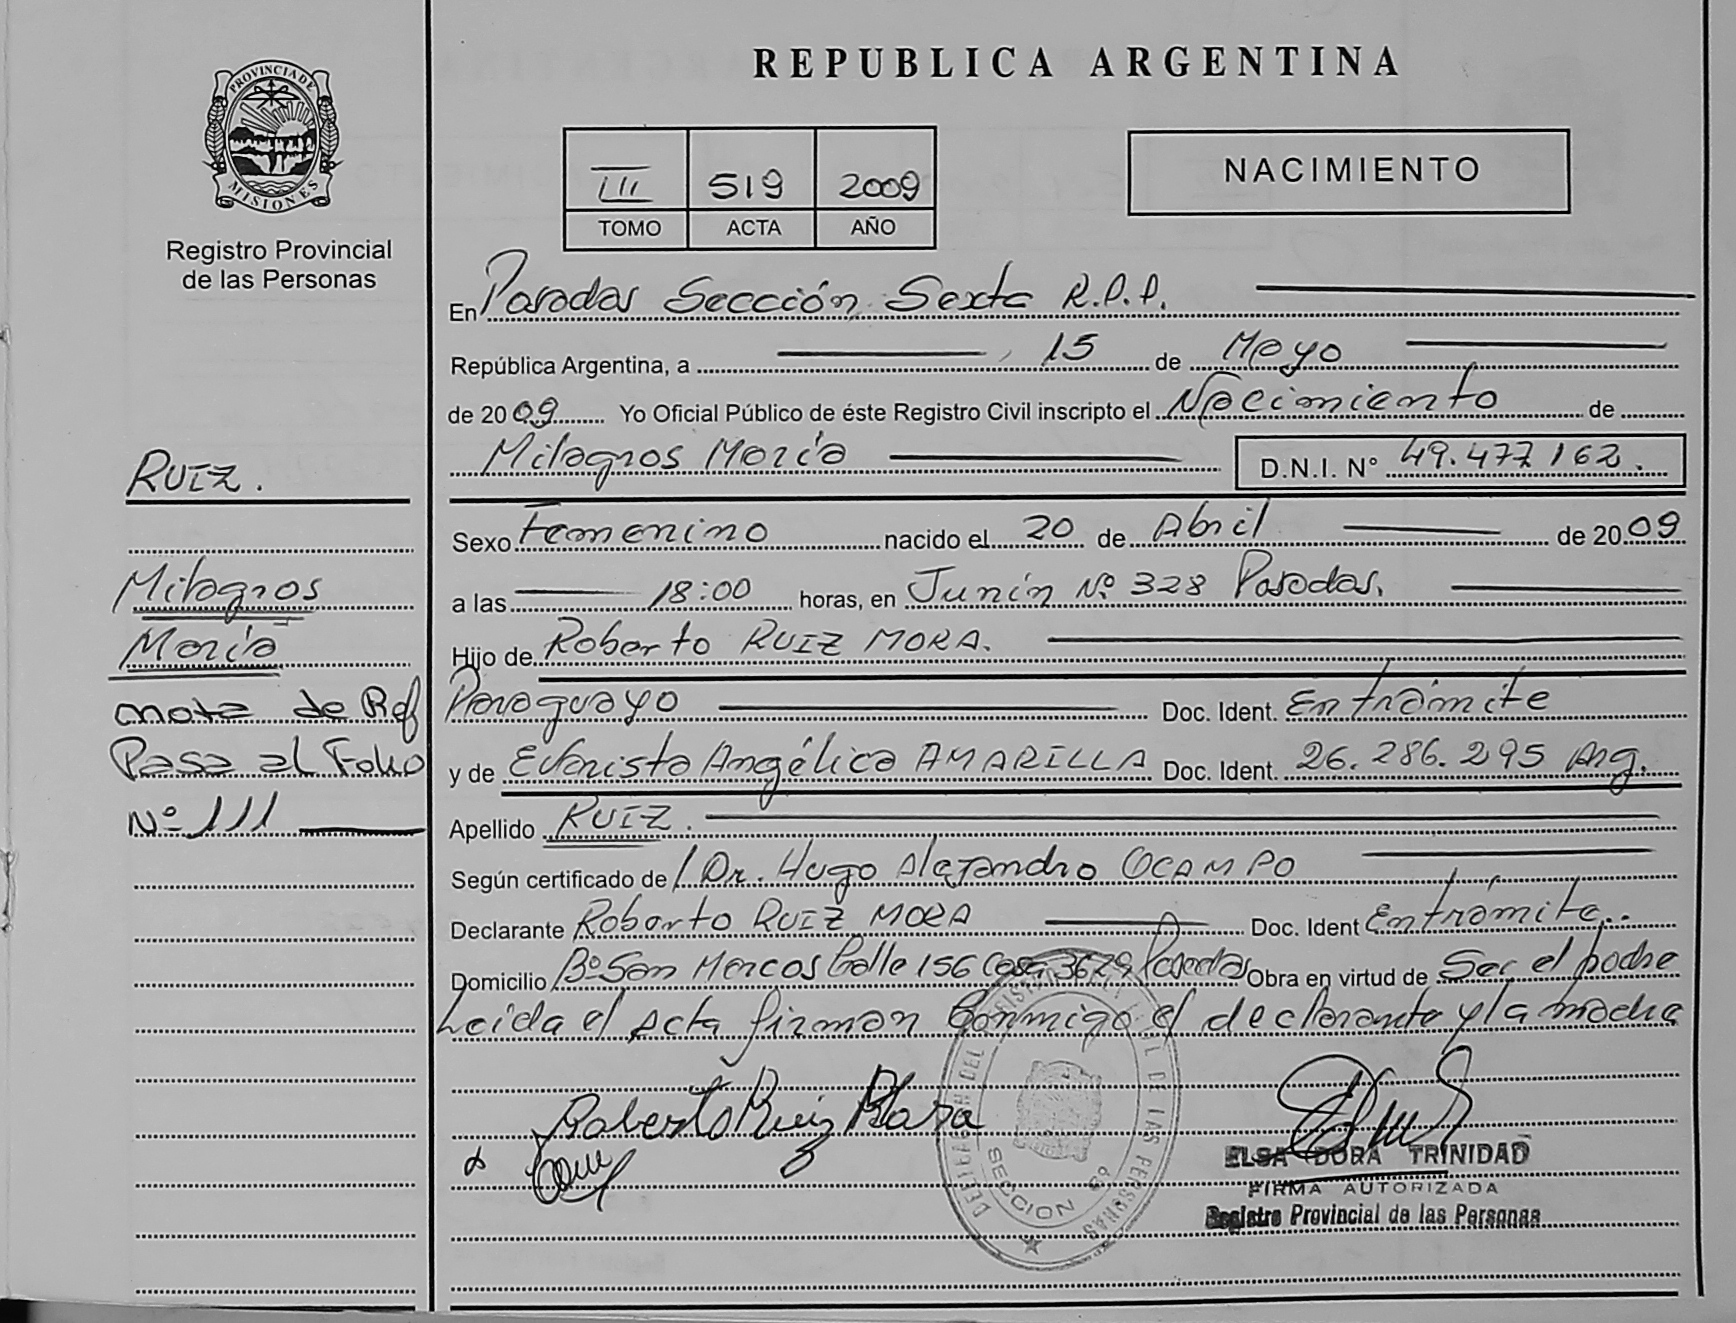 PROVINCIA DE
MISIONES
Registro Provincial
de las Personas
REPUBLICA ARGENTINA
III 519 2009
TOMO ACTA AÑO
NACIMIENTO
En Posadas Sección Sexta R.P.P.
República Argentina, a 15 de Mayo
de 2009 Yo Oficial Público de éste Registro Civil inscripto el Nacimiento de
Milagros María D.N.I. N° 49.477.162.
RUIZ.
Sexo Femenino nacido el 20 de Abril de 2009
Milagros
a las 18:00 horas, en Junín Nº 328 Posadas.
María
Hijo de Roberto RUIZ MORA.
nota de Ref
Paraguayo Doc. Ident. En trámite
Pasa al Folio
y de Evarista Angélica AMARILLA Doc. Ident. 26.286.295 Arg.
Nº 111
Apellido RUIZ.
Según certificado de Dr. Hugo Alejandro OCAMPO
Declarante Roberto RUIZ MORA Doc. Ident En trámite.
Domicilio Bº San Marcos Calle 156 Casa 3629 Posadas Obra en virtud de Ser el padre
Leida el Acta firman conmigo el declarante y la madre
Roberto Ruiz Mora
DELEGACION DEL REGISTRO DE LAS PERSONAS
SECCION 6ª
ELSA DORA TRINIDAD
FIRMA AUTORIZADA
Registro Provincial de las Personas